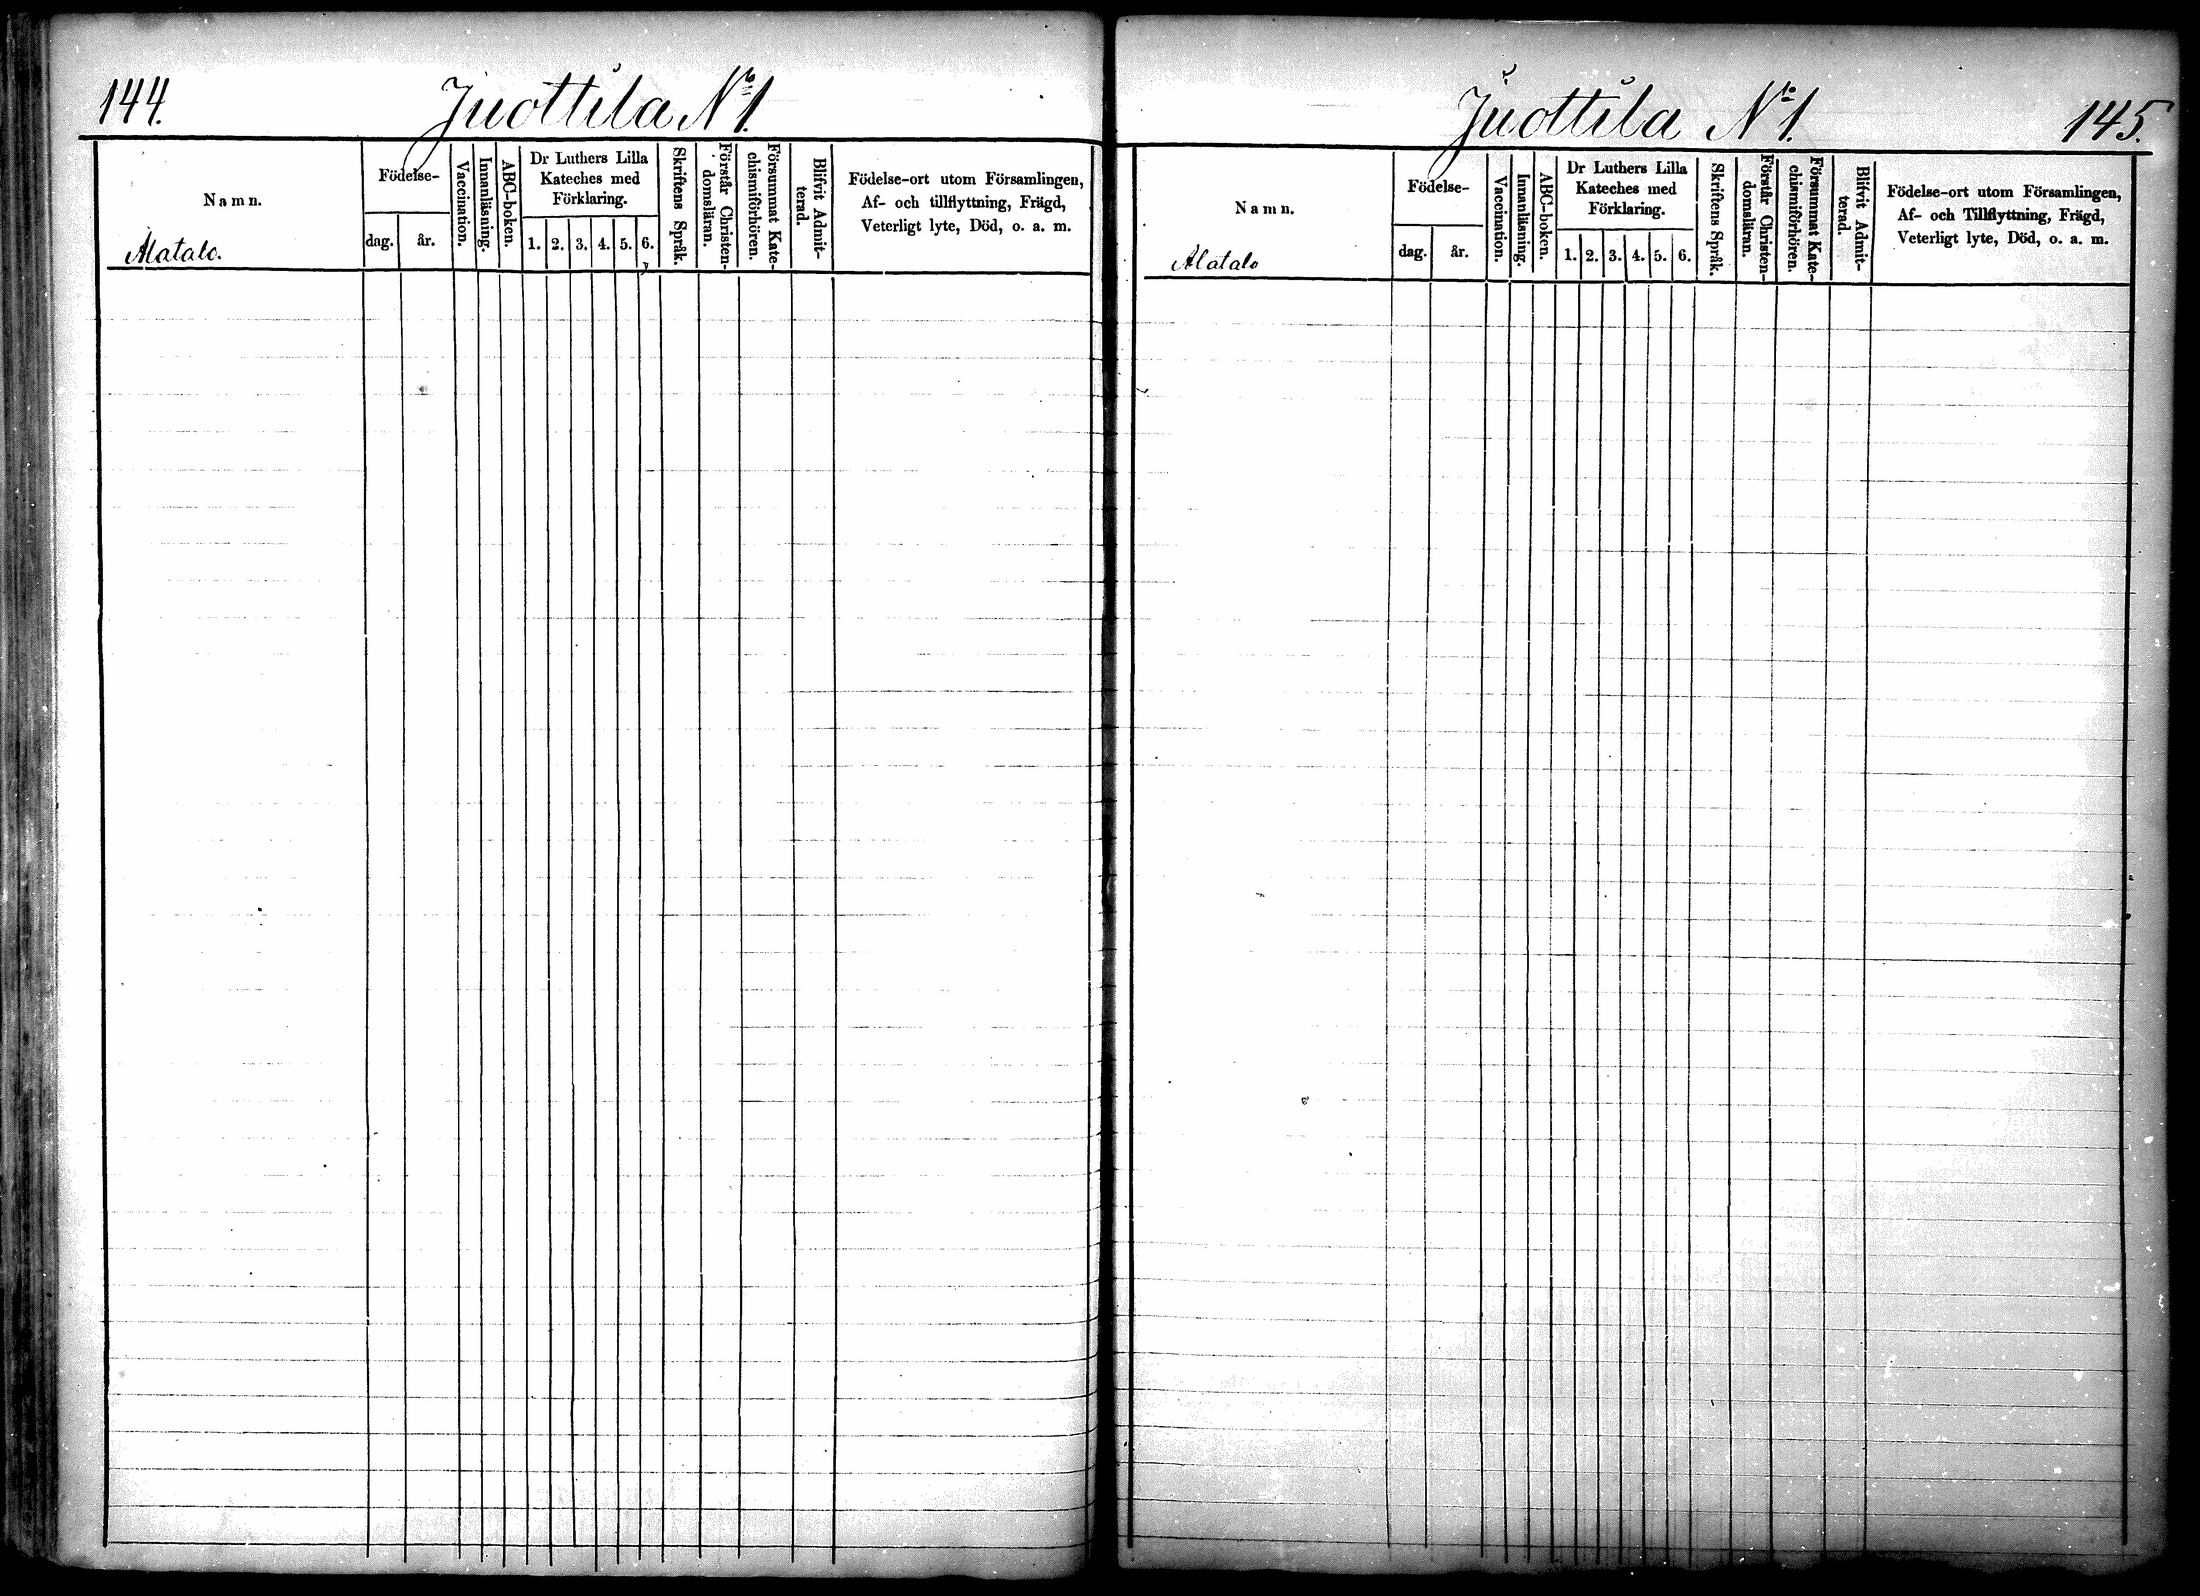 144.
Juottila No 1.
Namn.
Alatalo.
Födelse-
dag.
år.
Vaccination.
Innanläsning.
ABC-boken.
Dr Luthers Lilla
Kateches med
Förklaring.
1. 2. 3. 4. 5. 6.
Skriftens Språk.
Förstår Christen-
domsläran.
Försummat Kate-
chismiförhören.
Blifvit Admit-
terad.
Födelse-ort utom Församlingen,
Af- och tillflyttning, Frägd,
Veterligt lyte, Död, o. a. m.
Juottila No 1.
145.
Namn.
Alatalo
Födelse-
dag.
år.
Vaccination.
Innanläsning.
ABC-boken.
Dr Luthers Lilla
Kateches med
Förklaring.
1. 2. 3. 4. 5. 6.
Skriftens Språk.
Förstår Christen-
domsläran.
Försummat Kate-
chismiförhören.
Blifvit Admit-
terad.
Födelse-ort utom Församlingen,
Af- och Tillflyttning, Frägd,
Veterligt lyte, Död, o. a. m.